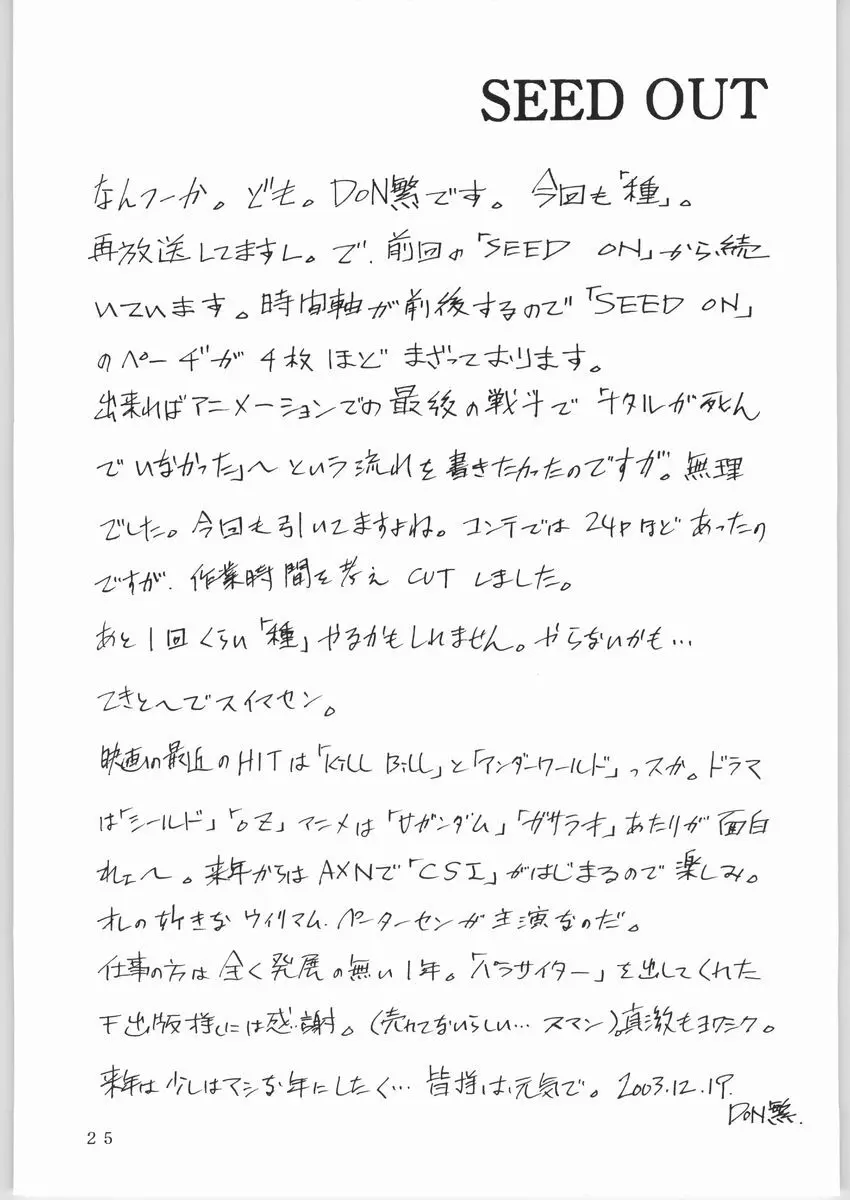 SEED OUT
なんつーか。ども。DON繁です。今回も「種」。
再放送してますし。で、前回の「SEED ON」から続
いています。時間軸が前後するので「SEED ON」
のページが4枚ほどまざっております。
出来ればアニメーションでの最後の戦斗で「ナタルが死ん
でいなかった」〜という流れを書きたかったのですが。無理
でした。今回も引いてますよね。コンテでは24Pほどあったの
ですが、作業時間を考えCUTしました。
あと1回くらい「種」やるかもしれません。やらないかも…
てきと〜でスイマセン。
映画の最近のHITは「Kill Bill」と「アンダーワールド」っスか。ドラマ
は「シールド」「OZ」アニメは「サガンダム」「ガサラオ」あたりが面白
れェ〜。来年からはAXNで「CSI」がはじまるので楽しみ。
オレの好きなウィリアム・ペーターセンが主演なのだ。
仕事の方は全く発展の無い1年。「パラサイター」を出してくれた
出版様には感謝。(売れてないらしい…スマン)。真激もヨロシク。
来年は少しはマシな年にしたく…皆様は元気で。2003.12.19.
DON繁.
25